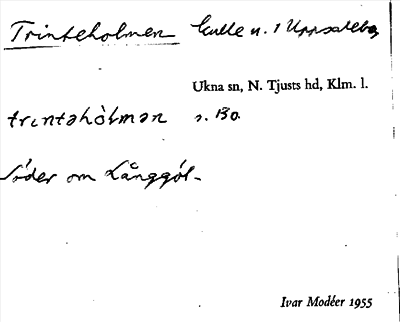 Trinteholmen kulle n. 1 Uppsala
Ukna sn, N. Tjusts hd, Klm. l.
trıntəhòlmən s. 130.
Söder om Långgöl.
Ivar Modéer 1955